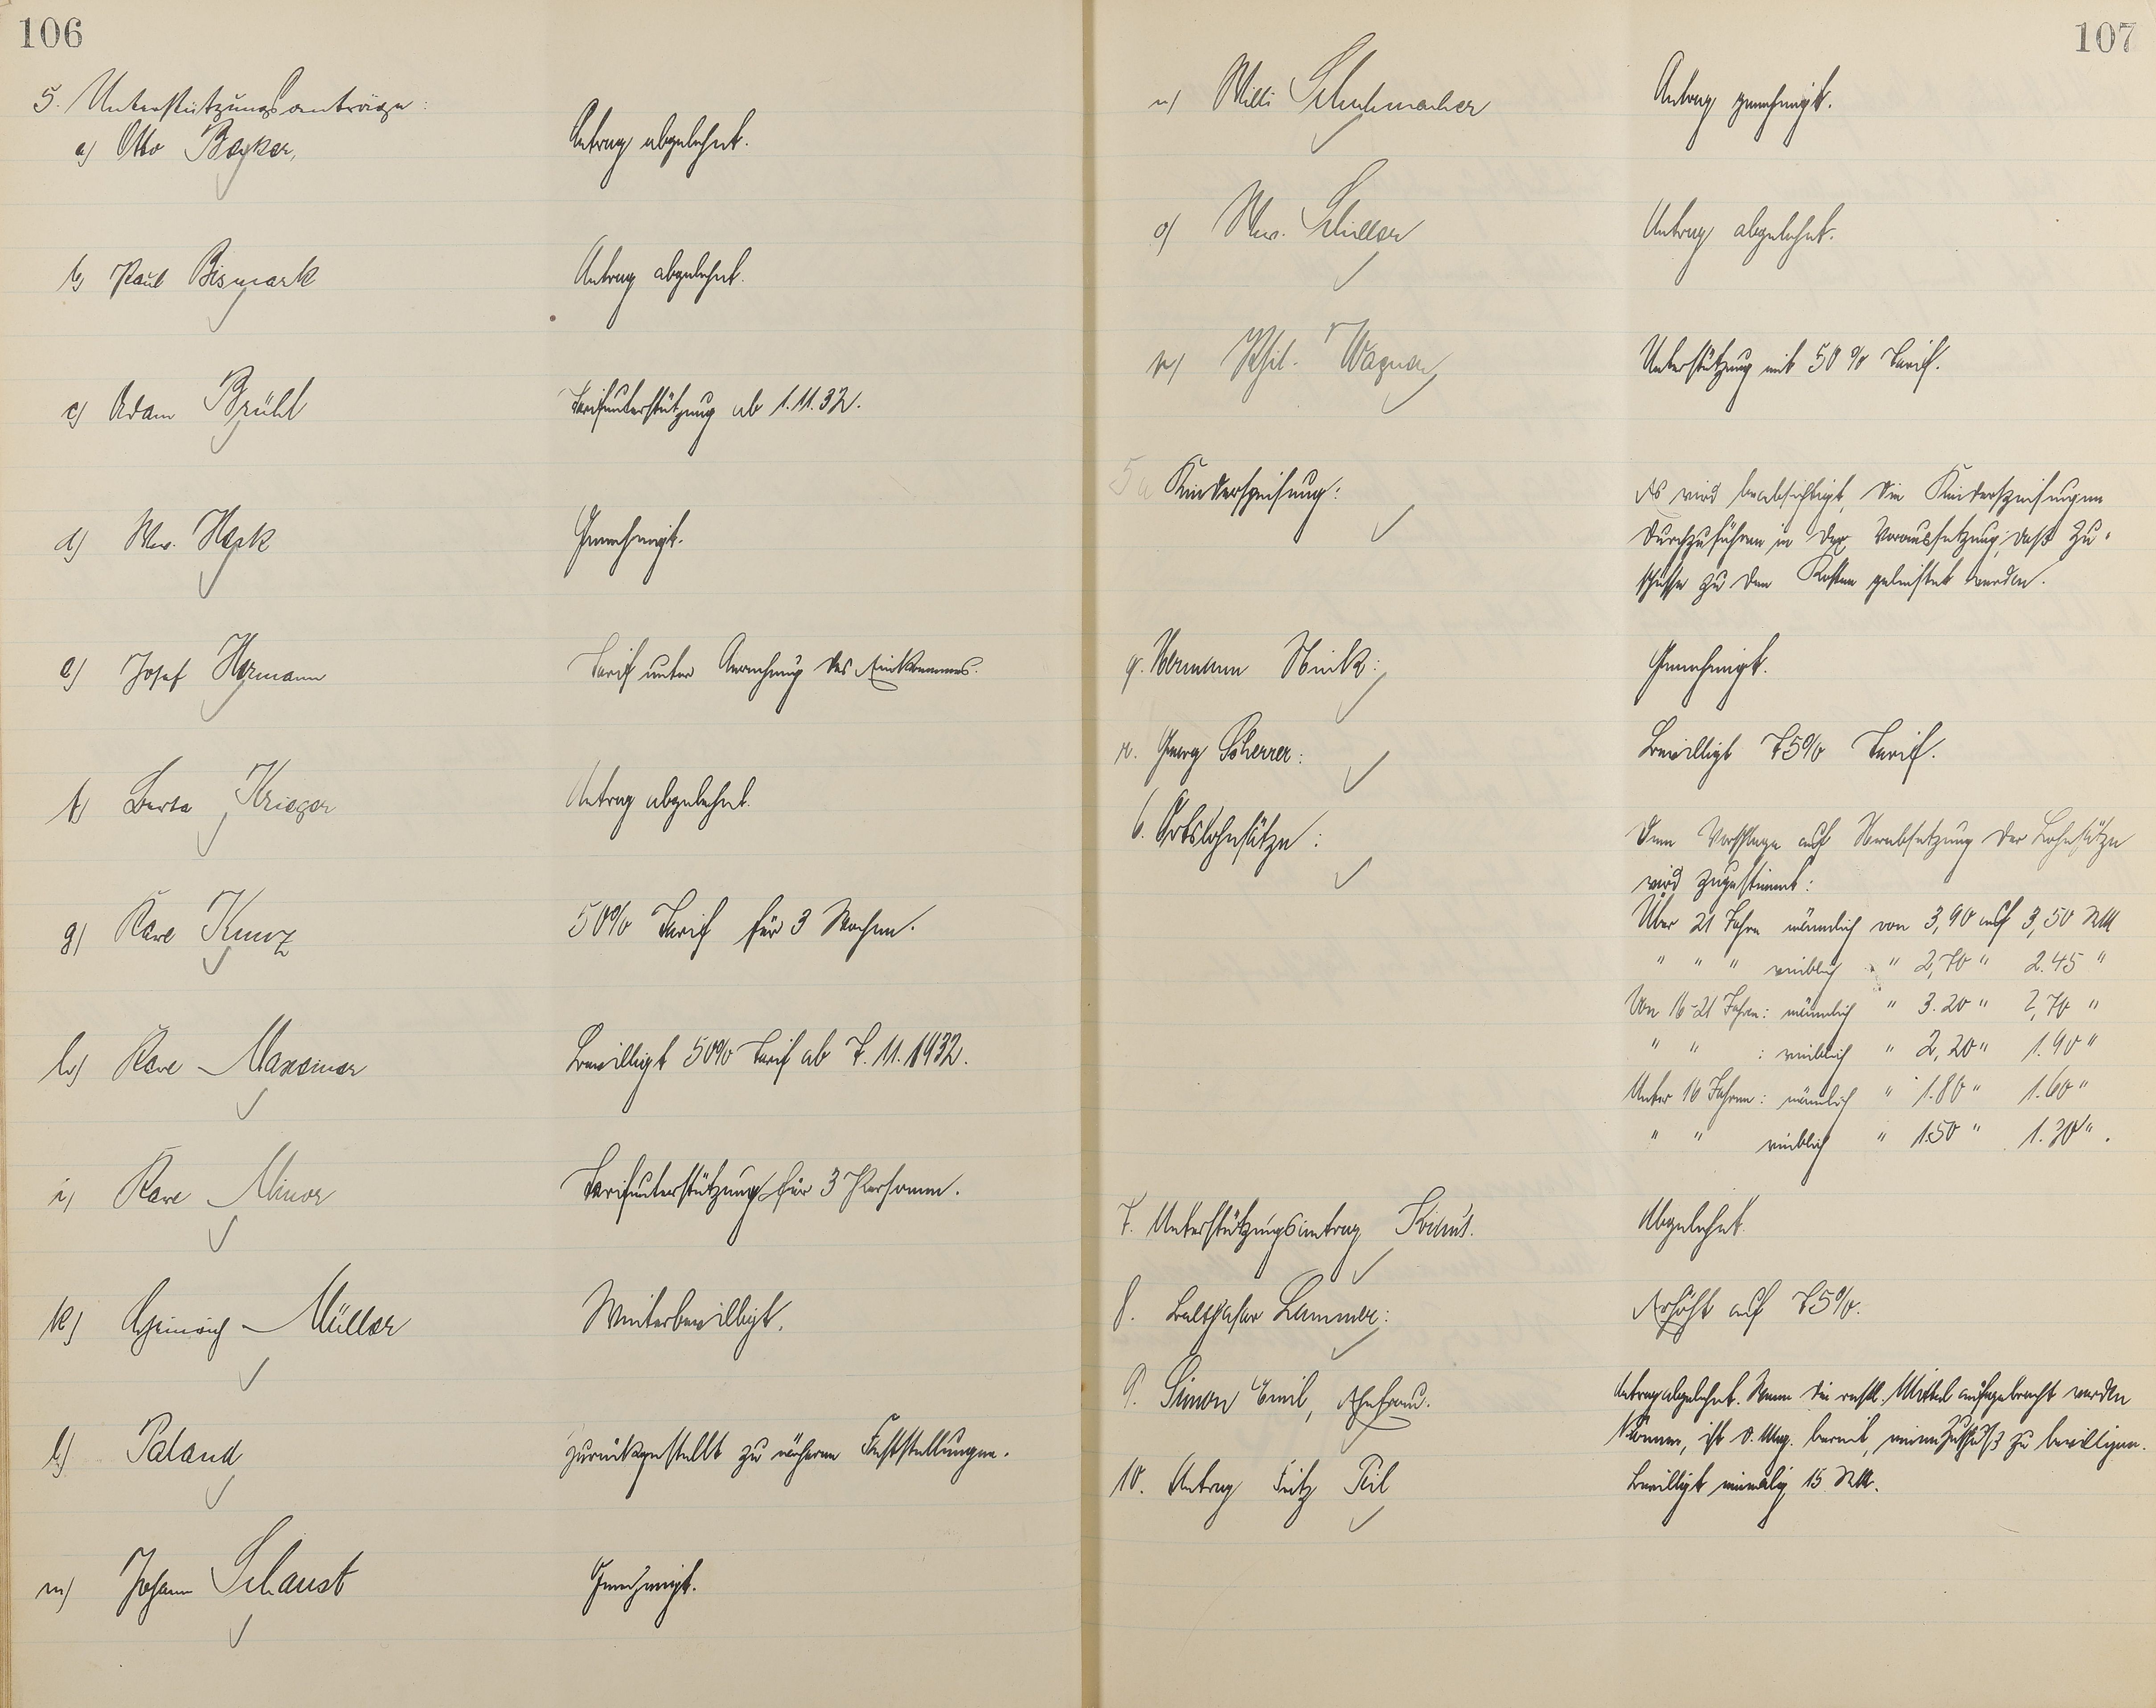 106
5. Unterstützungsanträge:
a) Otto Becker, Antrag abgelehnt.
b) Paul Bismark Antrag abgelehnt.
c) Adam Brühl Tarifunterstützung ab 1.11.32.
d) Ww. Heck Genehmigt.
e) Josef Hermann Tarif unter Anrechnung des Einkommens.
f) Berta Krieger Antrag abgelehnt.
g) Karl Kunz 50% Tarif für 3 Wochen.
h) Karl Maxeiner Bewilligt 50% Tarif ab 7.11.1932.
i) Karl Minor Tarifunterstützung für 3 Personen.
k) Heinrich Müller Weiterbewilligt.
l) Paland Zurückgestellt zu näheren Feststellungen.
m) Johann Schaust Genehmigt.
107
n) Willi Schuhmacher Antrag genehmigt.
o) Ww. Schiller Antrag abgelehnt.
p) Phil. Wagner Unterstützung mit 50% Tarif.
5a Kinderspeisung: Es wird beabsichtigt, die Kinderspeisungen
durchzuführen in der Voraussetzung, daß Zu-
schüsse zu den Kosten geleistet werden.
q. Hermann Stink: Genehmigt.
r. Georg Scherrer: Bewilligt 75% Tarif.
6. Ortslohnsätze: Dem Vorschlage auf Herabsetzung der Lohnsätze
wird zugestimmt:
Über 21 Jahre männlich von 3,90 auf 3,50 RM
" " " weiblich " 2,70 " 2.45 "
Von 16-21 Jahren: männlich " 3.20 " 2,70 "
" " : weiblich " 2,20 " 1.90 "
Unter 16 Jahren: männlich " 1.80 " 1.60 "
" " weiblich " 1.50 " 1.30 ".
7. Unterstützungsantrag Abgelehnt.
8. Balthasar Lammer: Erhöht auf 75%.
9. Simon Emil, Ehefrau. Antrag abgelehnt. Wenn die restl. Mittel aufgebracht werden
können, ist d. Mag. bereit, einen Zuschuß zu bewilligen.
10. Antrag Fritz Bewilligt einmalig 15 RM.